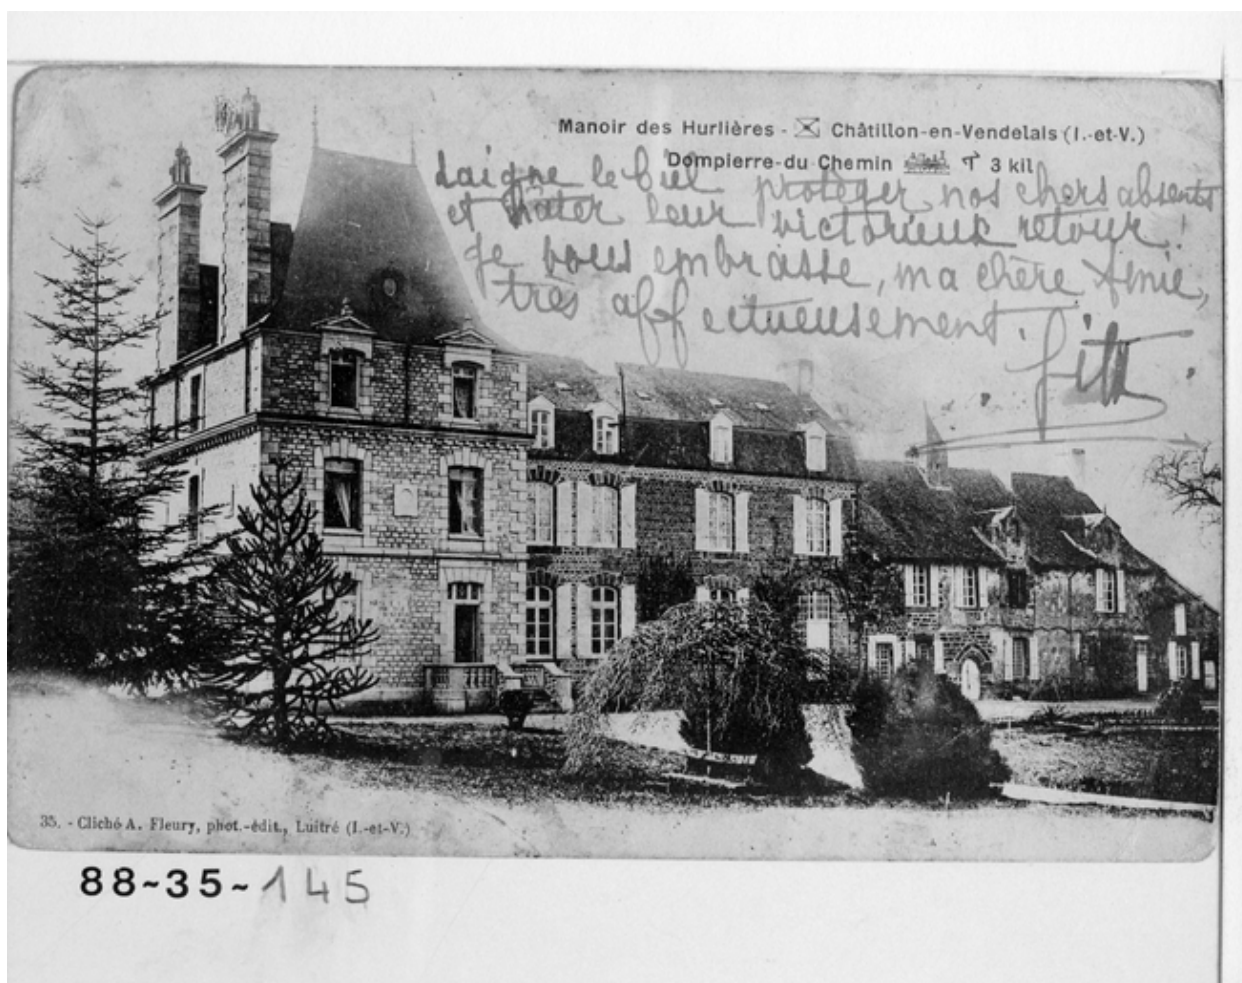 Manoir des Hurlières - Châtillon-en-Vendelais (I.-et-V.)
Dompierre-du-Chemin 3 kil
Daigne le Ciel protéger nos chers absents
et hâter leur victorieux retour !
Je vous embrasse, ma chère Amie,
très affectueusement.
35. - Cliché A. Fleury, phot.-édit., Luitré (I.-et-V.)
88-35-145